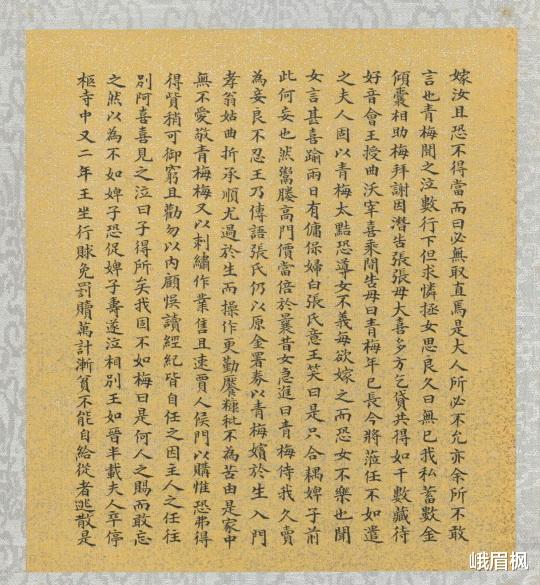 嫁汝且恐不得當而曰必無取直焉是大人所必不允亦余所不敢
言也青梅聞之泣數行下但求憐拯女思良久曰無已我私蓄數金
傾囊相助梅拜謝因潛告張張母大喜多方乞貸共得如干數藏待
好音會王授曲沃宰喜乘間告母曰青梅年已長今將蒞任不如遣
之夫人固以青梅太黠恐導女不義每欲嫁之而恐女不樂也聞
女言甚喜踰兩日有傭保婦白張氏意王笑曰是只合耦婢子前
此何妄也然鬻媵高門價當倍於曩昔女急進曰青梅侍我久賣
為妾良不忍王乃傳語張氏仍以原金署券以青梅嬪於生入門
孝翁姑曲折承順尤過於生而操作更勤饜糠秕不為苦由是家中
無不愛敬青梅梅又以刺繡作業售且速賈人候門以購惟恐弗得
得貲稍可御窮且勸勿以內顧悞讀經紀皆自任之因主人之任往
別阿喜喜見之泣曰子得所矣我固不如梅曰是何人之賜而敢忘
之然以為不如婢子恐促婢子壽遂泣相別王如晉半載夫人卒停
柩寺中又二年王坐行賕免罰贖萬計漸貧不能自給從者逃散是
峨眉枫